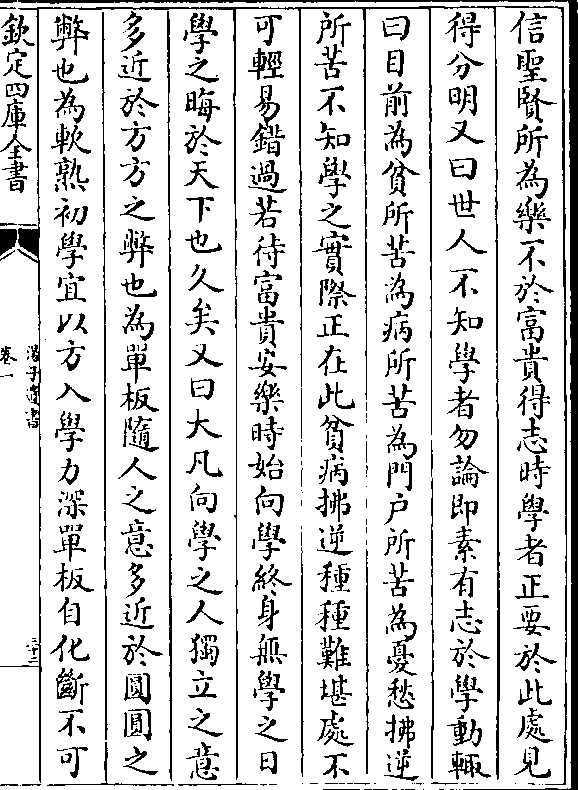 信聖賢所為樂不於富貴得志時學者正要於此處見
得分明又曰世人不知學者勿論即素有志於學動輒
曰目前為貧所苦為病所苦為門户所苦為憂愁拂逆
所苦不知學之實際正在此貧病拂逆種種難堪處不
可輕易錯過若待富貴安樂時始向學終身無學之日
學之晦於天下也久矣又曰大凡向學之人獨立之意
多近於方方之弊也為單板隨人之意多近於圓圓之
弊也為軟熟初學宜以方入學力深單板自化斷不可
欽定四庫全書
湯子遺書
卷一
三十二